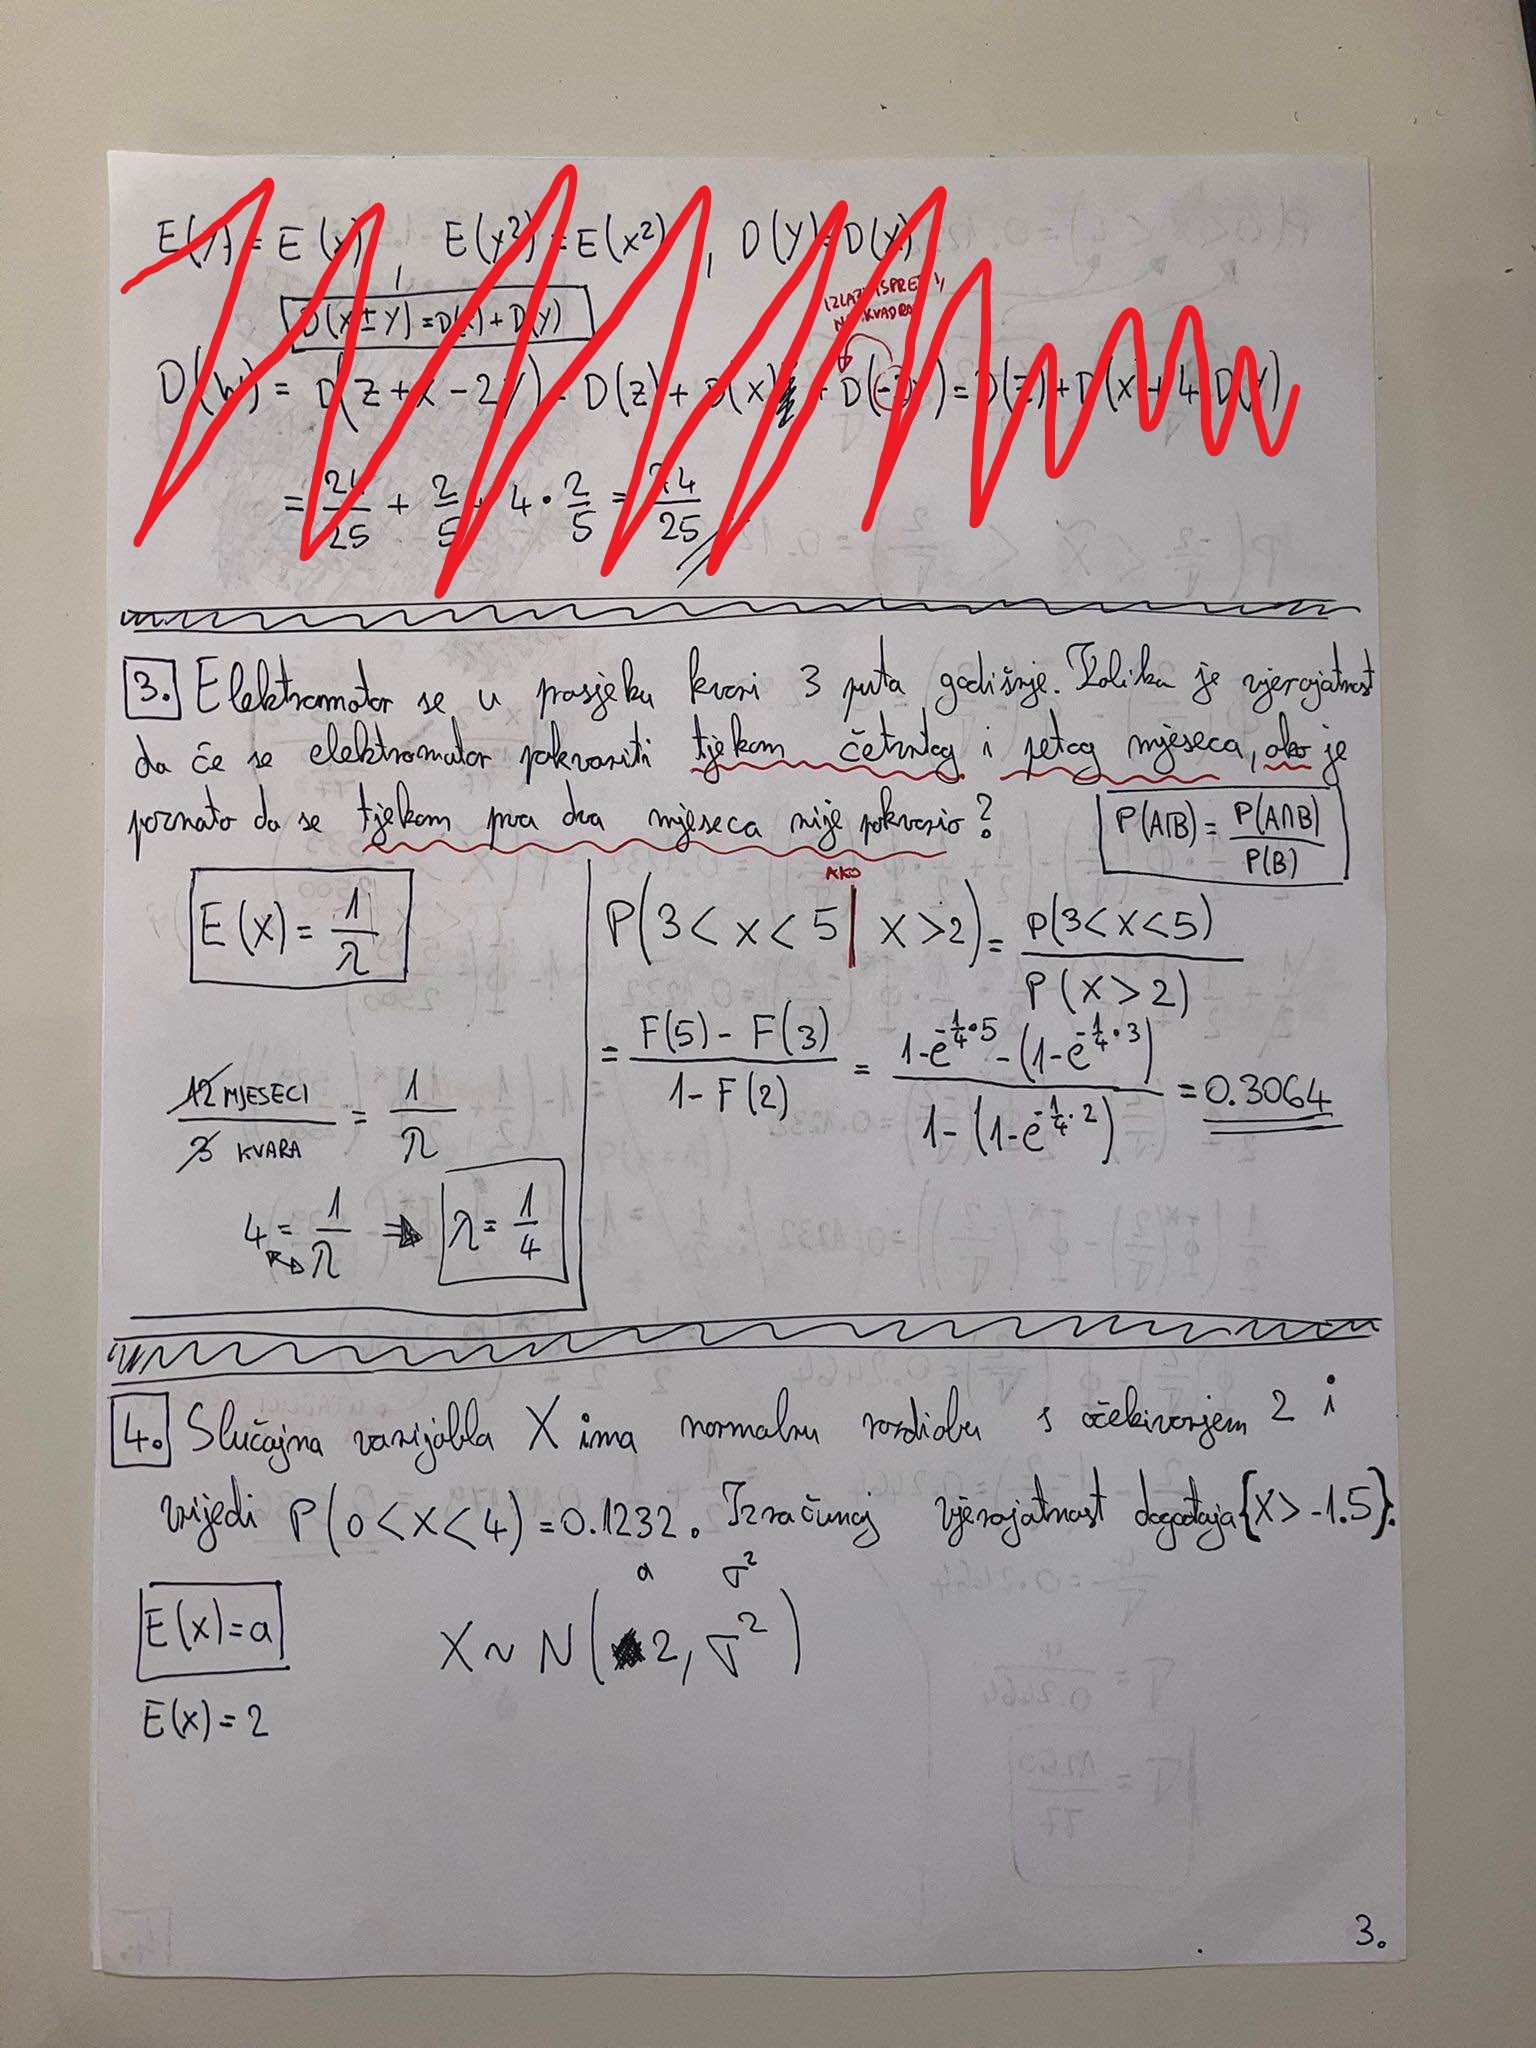 E(Y) = E(X), E(Y²) = E(X²), D(Y) = D(X)
D(X ± Y) = D(X) + D(Y)
IZLAZI ISPRED,
NA KVADRAT
D(W) = D(Z + X - 2Y) = D(Z) + D(X) + D(-2Y) = D(Z) + D(X) + 4 D(Y)
= 24/25 + 2/5 + 4 · 2/5 = 74/25
3. Elektromotor se u prosjeku kvari 3 puta godišnje. Kolika je vjerojatnost
da će se elektromotor pokvariti tjekom četvrtog i petog mjeseca, ako je
poznato da se tjekom prva dva mjeseca nije pokvario?
P(A|B) = P(A∩B)/P(B)
E(X) = 1/λ
12 MJESECI / 3 KVARA = 1/λ
4 = 1/λ ⇒ λ = 1/4
AKO
P(3 < X < 5 | X > 2) = P(3 < X < 5) / P(X > 2)
= (F(5) - F(3)) / (1 - F(2)) = (1 - e^(-1/4 · 5) - (1 - e^(-1/4 · 3))) / (1 - (1 - e^(-1/4 · 2))) = 0.3064
4. Slučajna varijabla X ima normalnu razdiobu s očekivanjem 2 i
vrijedi P(0 < X < 4) = 0.1232. Izračunaj vjerojatnost događaja {X > -1.5}.
a σ²
E(X) = a
X ~ N(2, σ²)
E(X) = 2
3.